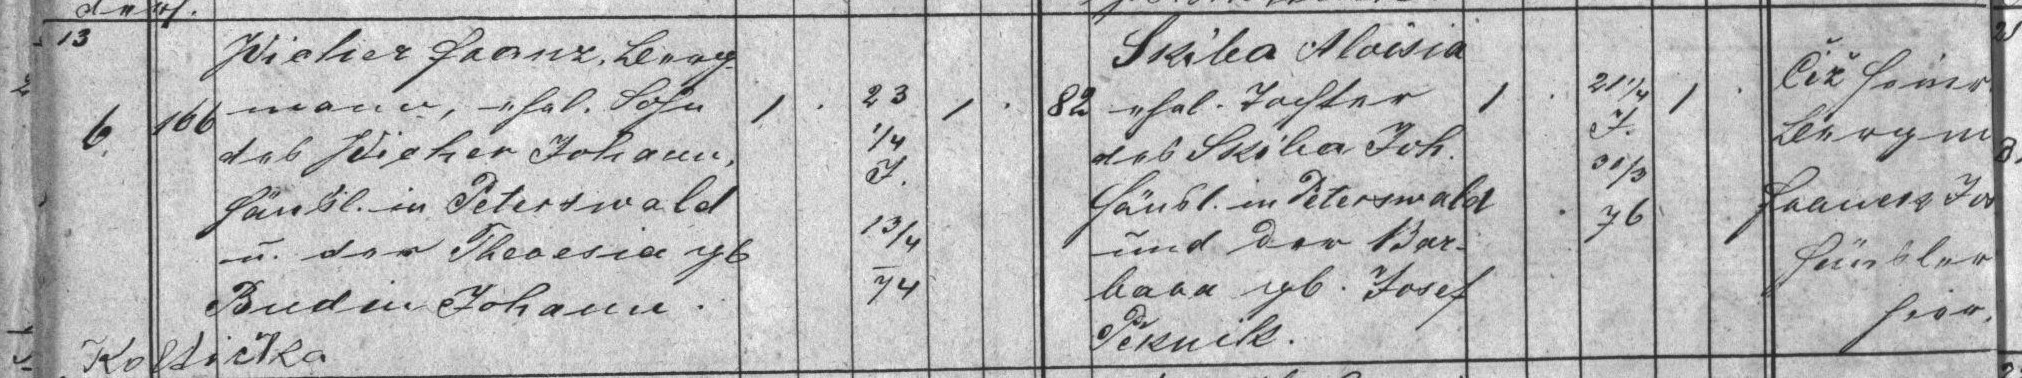 13
6. 166
Wicher Franz, Berg-
mann, ehel. Sohn
des Wicher Johann,
Häusl. in Peterswald
u. der Theresia gb
Budin Johann.
Kostička
1 . 23 1 .
1/4
J.
13/4
74
82
Skiba Aloisia
ehel. Tochter
des Skiba Joh.
Häusl. in Peterswald
und der Bar-
bara gb. Josef
Peknik.
1 . 21 1/4 1 .
J.
31/3
76
Čiž Heinr
Bergm
Franek Jos
Häusler
hier.